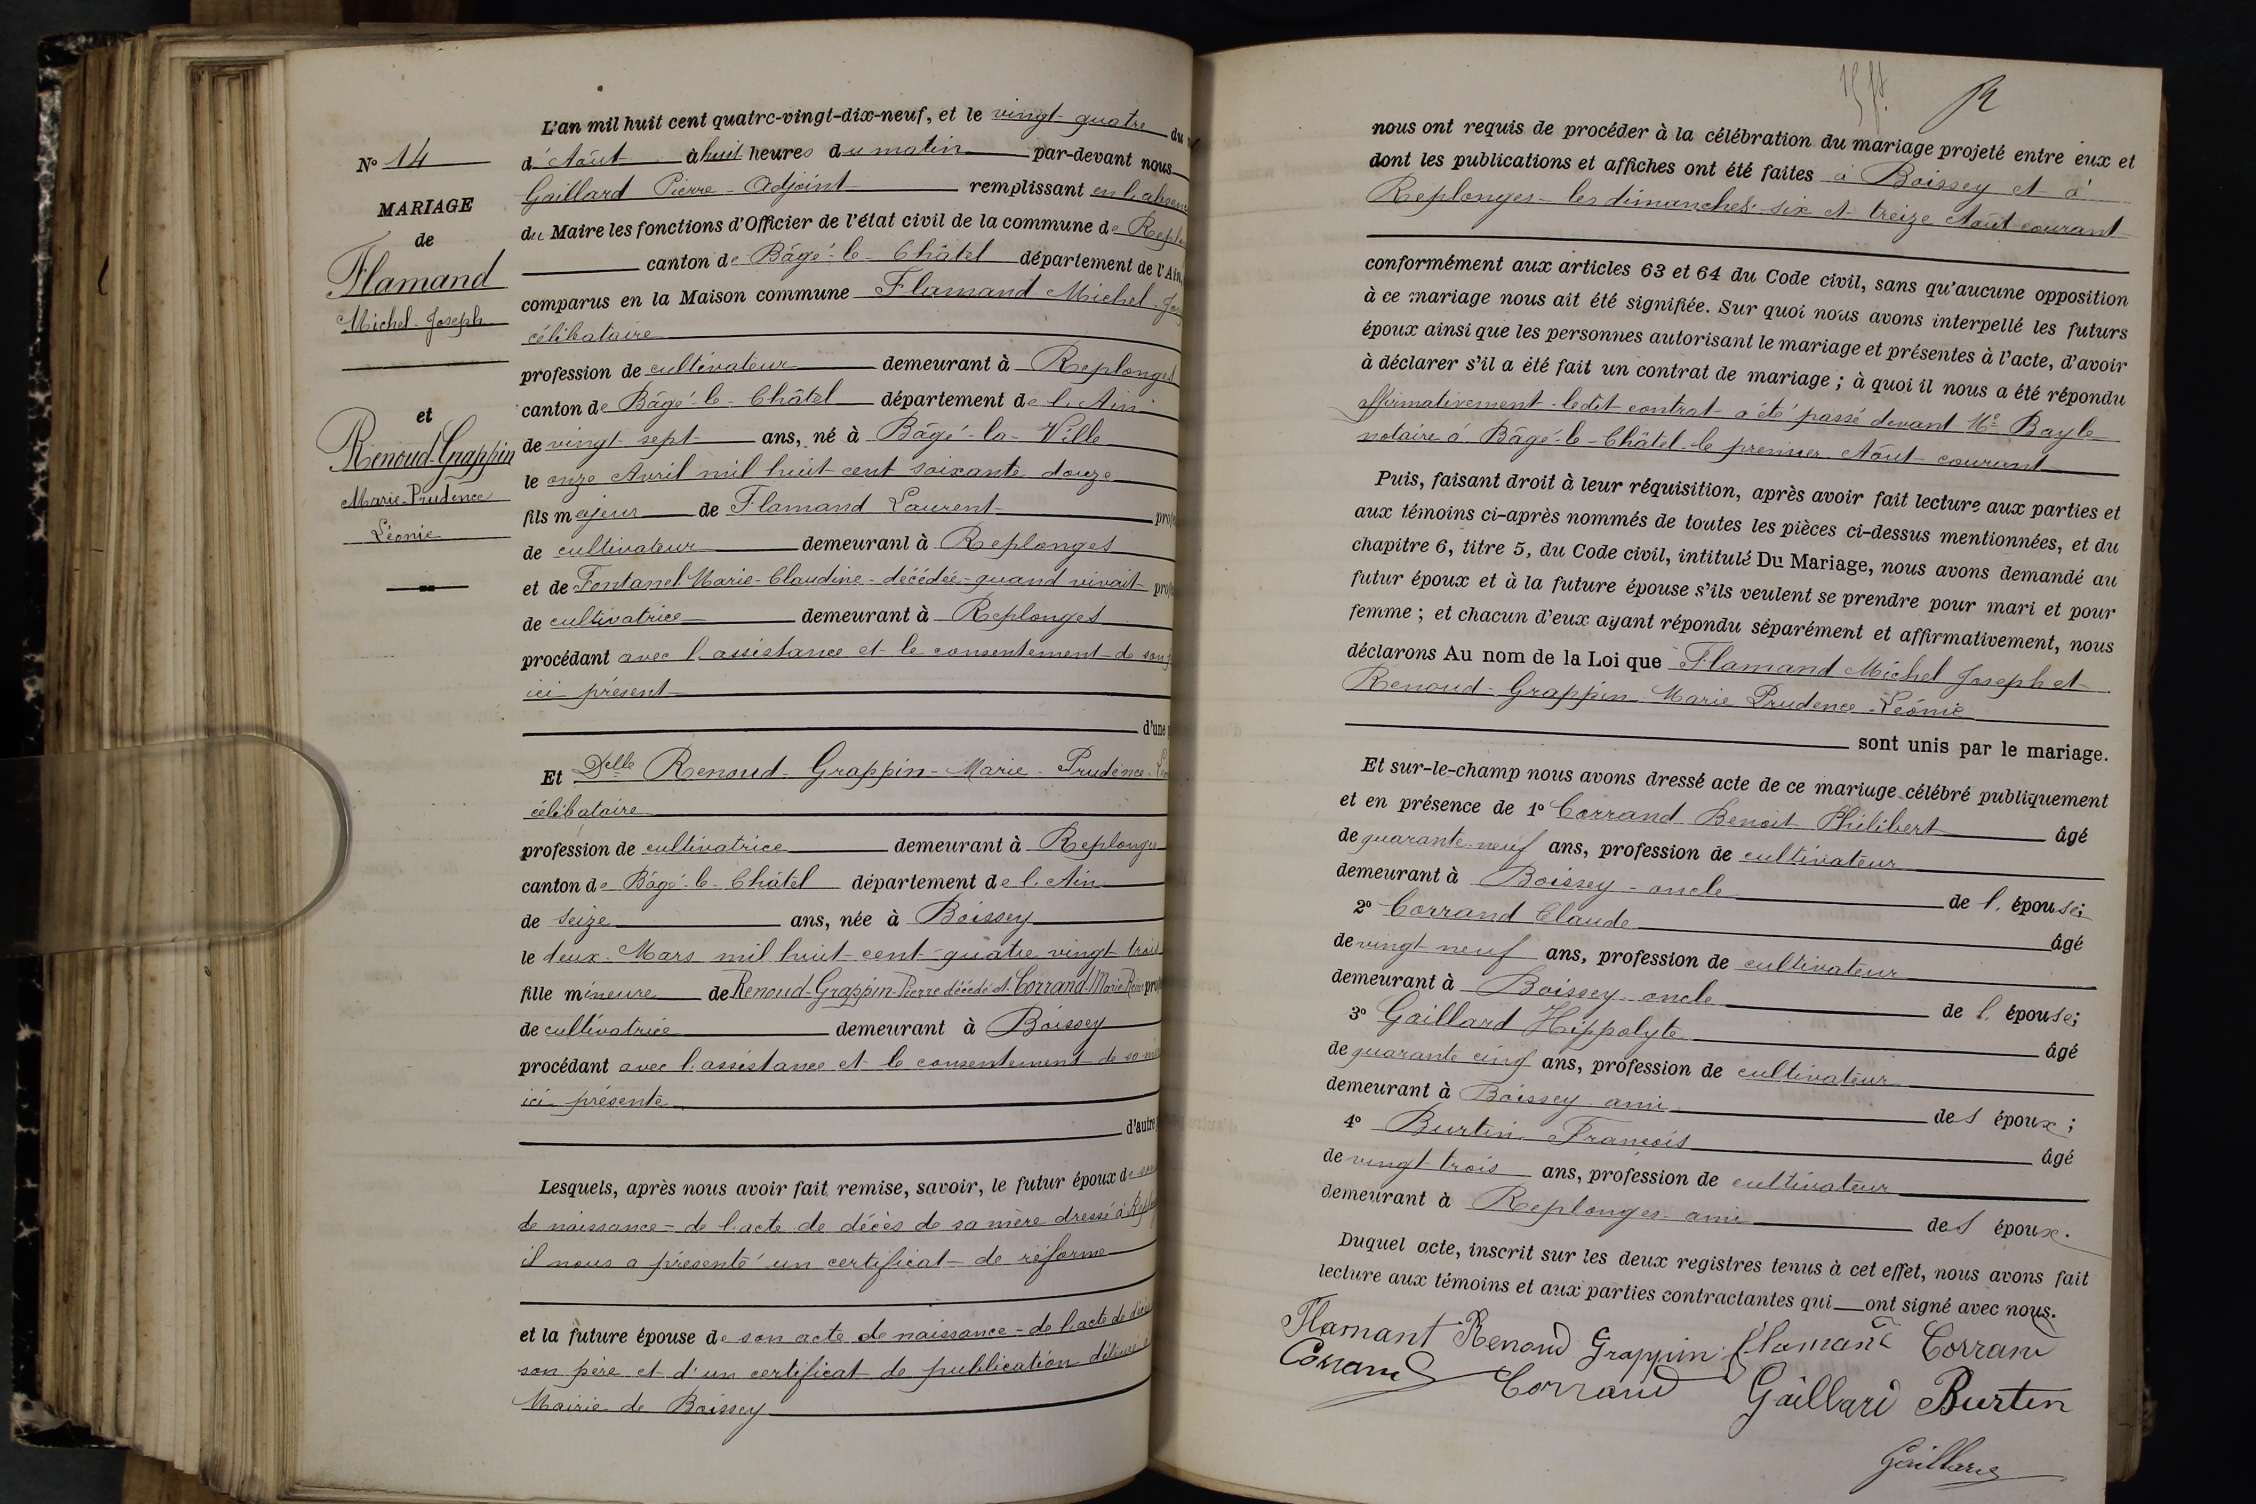 N° 14
MARIAGE
de
Flamand
Michel-Joseph
et
Renoud-Grappin
Marie-Prudence
Léonie
L'an mil huit cent quatre-vingt-dix-neuf, et le vingt-quatre du
d'Août à huit heures du matin par-devant nous
Gaillard Pierre - Adjoint remplissant en l'absen
du Maire les fonctions d'Officier de l'état civil de la commune de Repl
canton de Bâgé-le-Châtel département de l'Ain,
comparus en la Maison commune Flamand Michel-Jos
célibataire
profession de cultivateur demeurant à Replonges
canton de Bâgé-le-Châtel département de l'Ain
de vingt-sept ans, né à Bâgé-la-Ville
le onze Avril mil huit cent soixante douze
fils majeur de Flamand Laurent profe
de cultivateur demeurant à Replonges
et de Fontanel Marie-Claudine - décédée - quand vivait profe
de cultivatrice demeurant à Replonges
procédant avec l'assistance et le consentement de son p
ici présent
d'une p
Et Delle Renoud-Grappin-Marie-Prudence-Léo
célibataire
profession de cultivatrice demeurant à Replonge
canton de Bâgé-le-Châtel département de l'Ain
de seize ans, née à Boissey
le deux Mars mil huit cent quatre vingt trois
fille mineure de Renoud-Grappin-Pierre décédé et Corrand Marie Reine prof
de cultivatrice demeurant à Boissey
procédant avec l'assistance et le consentement de sa mè
ici présente
d'autre
Lesquels, après nous avoir fait remise, savoir, le futur époux de son
de naissance - de l'acte de décès de sa mère dressé à Repl
il nous a présenté un certificat de réforme
et la future épouse de son acte de naissance - de l'acte de décès
son père et d'un certificat de publication délivré
Mairie de Boissey
nous ont requis de procéder à la célébration du mariage projeté entre eux et
dont les publications et affiches ont été faites à Boissey et à
Replonges - les dimanches six et treize Août courant
conformément aux articles 63 et 64 du Code civil, sans qu'aucune opposition
à ce mariage nous ait été signifiée. Sur quoi nous avons interpellé les futurs
époux ainsi que les personnes autorisant le mariage et présentes à l'acte, d'avoir
à déclarer s'il a été fait un contrat de mariage ; à quoi il nous a été répondu
affirmativement - ledit contrat a été passé devant Me Bayle
notaire à Bâgé-le-Châtel le premier Août courant
Puis, faisant droit à leur réquisition, après avoir fait lecture aux parties et
aux témoins ci-après nommés de toutes les pièces ci-dessus mentionnées, et du
chapitre 6, titre 5, du Code civil, intitulé Du Mariage, nous avons demandé au
futur époux et à la future épouse s'ils veulent se prendre pour mari et pour
femme ; et chacun d'eux ayant répondu séparément et affirmativement, nous
déclarons Au nom de la Loi que Flamand Michel Joseph et
Renoud-Grappin Marie Prudence Léonie
sont unis par le mariage.
Et sur-le-champ nous avons dressé acte de ce mariage célébré publiquement
et en présence de 1° Corrand Benoit Philibert âgé
de quarante-neuf ans, profession de cultivateur
demeurant à Boissey - oncle de l'épouse;
2° Corrand Claude âgé
de vingt neuf ans, profession de cultivateur
demeurant à Boissey oncle de l'épouse;
3° Gaillard Hippolyte âgé
de quarante cinq ans, profession de cultivateur
demeurant à Boissey ami des époux ;
4° Burtin François âgé
de vingt trois ans, profession de cultivateur
demeurant à Replonges ami des époux.
Duquel acte, inscrit sur les deux registres tenus à cet effet, nous avons fait
lecture aux témoins et aux parties contractantes qui ont signé avec nous.
Flamant Renoud Grappin Flamant Corrand
Corrand Corrand Gaillard Burtin
Gaillard